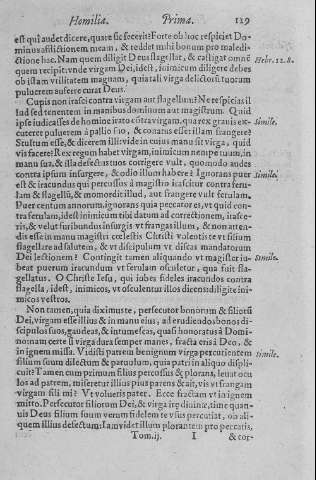 Homilia. Prima. 129
est qui audet dicere, quare sic fecerit? Forte ob hoc respiciet Do-
minus afflictionem meam, & reddet mihi bonum pro maledi-
ctione hac. Nam quem diligit Deus flagellat, & castigat omnẽ Hebr. 12.8.
quem recipit: vnde virgam Dei, idest, inimicum diligere debes
ob istam vtilitatem magnam, quia tali virga delictorũ tuorum
puluerem auferre curat Deus.
Cupis non irasci contra virgam aut flagellum? Ne respicias il
lud sed tenentem in manibus dominum aut magistrum. Quid
ipse iudicasses de homine irato cõtra virgam, qua rex grauis ex- Simile.
cuteret puluerem à pallio suo, & conatus esset illam frangere?
Stultum esse, & dicerem illi: vide in cuius manu sit virga, quid
vis facere? Rex regum habet virgam, inimicum nempe tuum, in
manu sua, & illa defectus tuos corrigere vult, quomodo audes
contra ipsum insurgere, & odio illum habere? Ignorans puer Simile.
est & iracundus qui percussus à magistro irascitur contra feru-
lam & flagellũ, & momordit illud, aut frangere vult ferulam.
Puer centum annorum, ignorans quia peccator es, vt quid con-
tra ferulam, idest inimicum tibi datum ad correctionem, irasce-
ris, & velut furibundus insurgis vt frangas illum, & non atten-
dis esse in manu magistri cœlestis Christi volentis te vt filium
flagellare ad salutem, & vt discipulum vt discas mandatorum
Dei lectionem? Contingit tamen aliquando vt magister iu- Simile.
beat puerum iracundum vt ferulam osculetur, qua fuit fla-
gellatus. O Christe Iesu, qui iubes fideles iracundos contra
flagella, idest, inimicos, vt osculentur illos dicens: diligite ini-
micos vestros.
Non tamen, quia diximus te, persecutor bonorum & filiorũ
Dei, virgam esse illius & in manu eius, ad erudiendos bonos di-
scipulos suos, gaudeas, & intumescas, quasi honoratus à Domi-
no: nam certe si virga dura semper manes, fracta eris à Deo, &
in ignem missa. Vidisti patrem benignum virga percutientem Simile.
filium suum dilectum & paruulum, quia patri in aliquo displi-
cuit? Tamen cum primum filius percussus & plorans, leuat ocu
los ad patrem, miseretur illius pius parens & ait, vis vt frangam
virgam fili mi? Vt volueris pater. Ecce fractam vt in ignem
mitto. Persecutor filiorum Dei, & virga irę diuinæ, time quan-
uis Deus filium suum verum fidelem te vsus percutiat, ob ali-
quem illius defectum: Iam videt illum plorantem pro peccatis,
Tom. ij. I & cor-